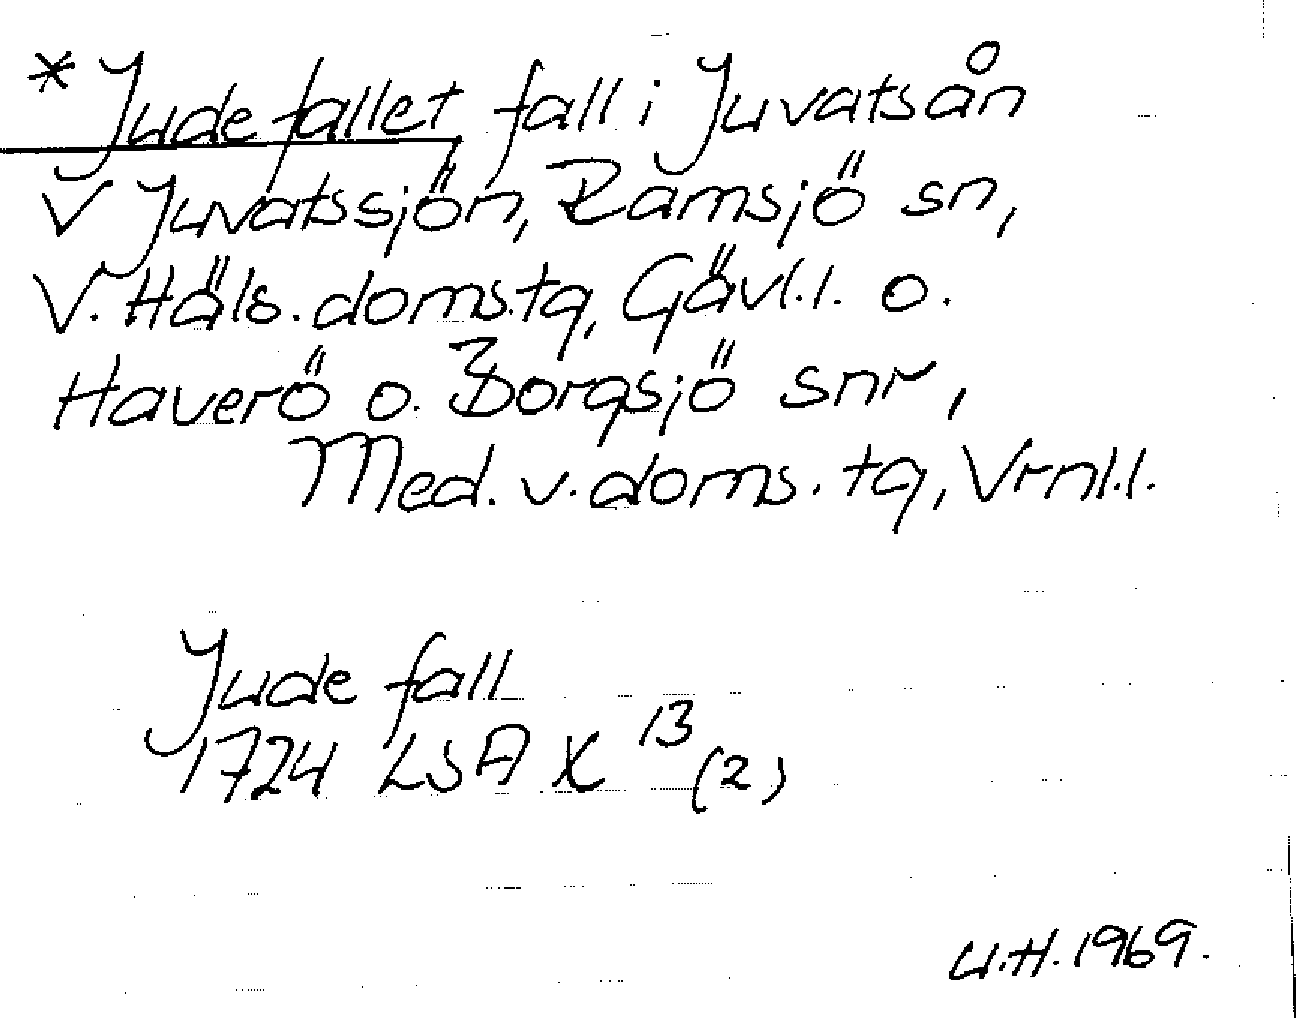 * Judefallet fall i Juvatsån
V Juvatssjön, Ramsjö sn,
V. Häls. doms.tg, Gävl.l. o.
Haverö o. Borgsjö snr,
Med. v. doms. tg, Vrnl.l.
Jude fall
1724 LSA X 13 (2)
U.H. 1969.